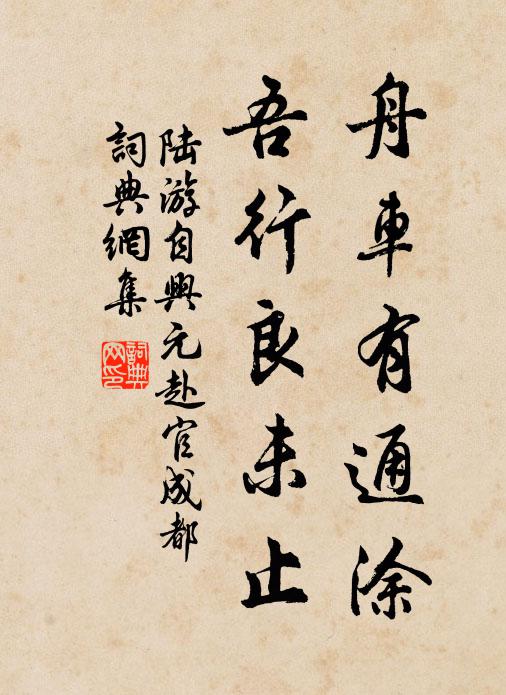 舟車有通涂
吾行良未止
陆游自興元赴官成都
詞典網集
詞典网印